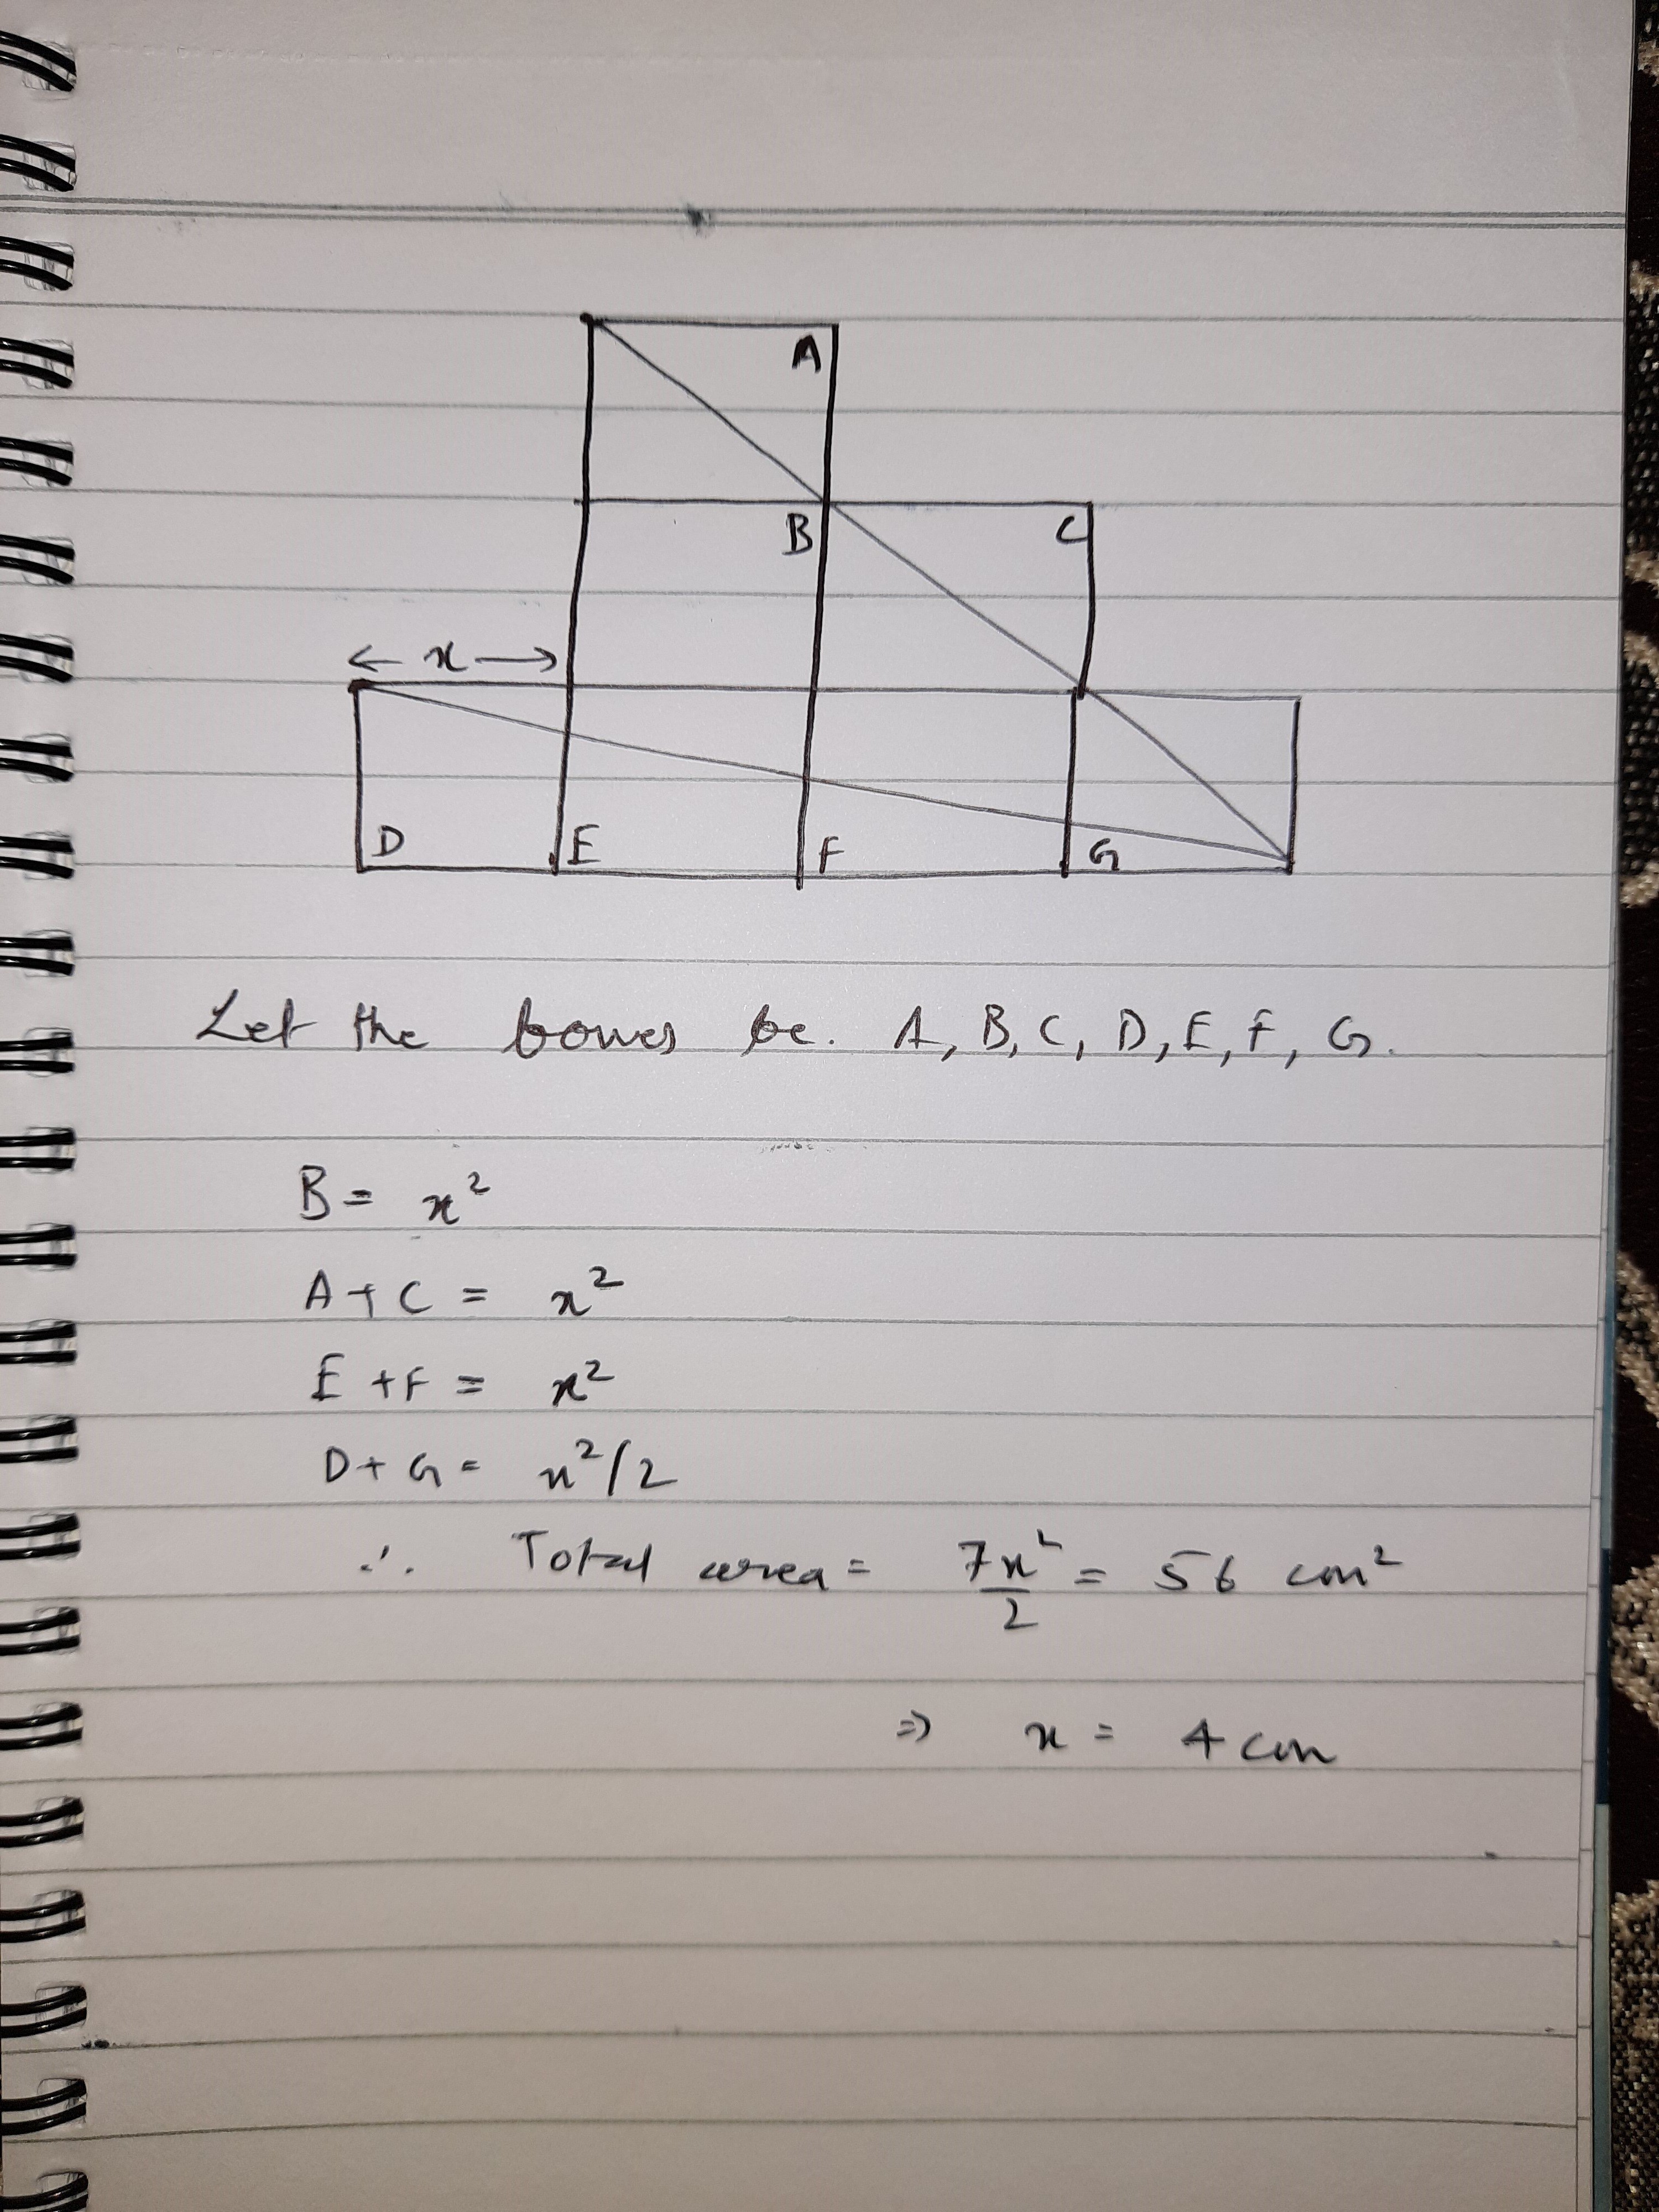 A
B C
← x →
D E F G
Let the boxes be. A, B, C, D, E, F, G.
B = x²
A + C = x²
E + F = x²
D + G = x²/2
∴ Total area = 7x²/2 = 56 cm²
⇒ x = 4 cm